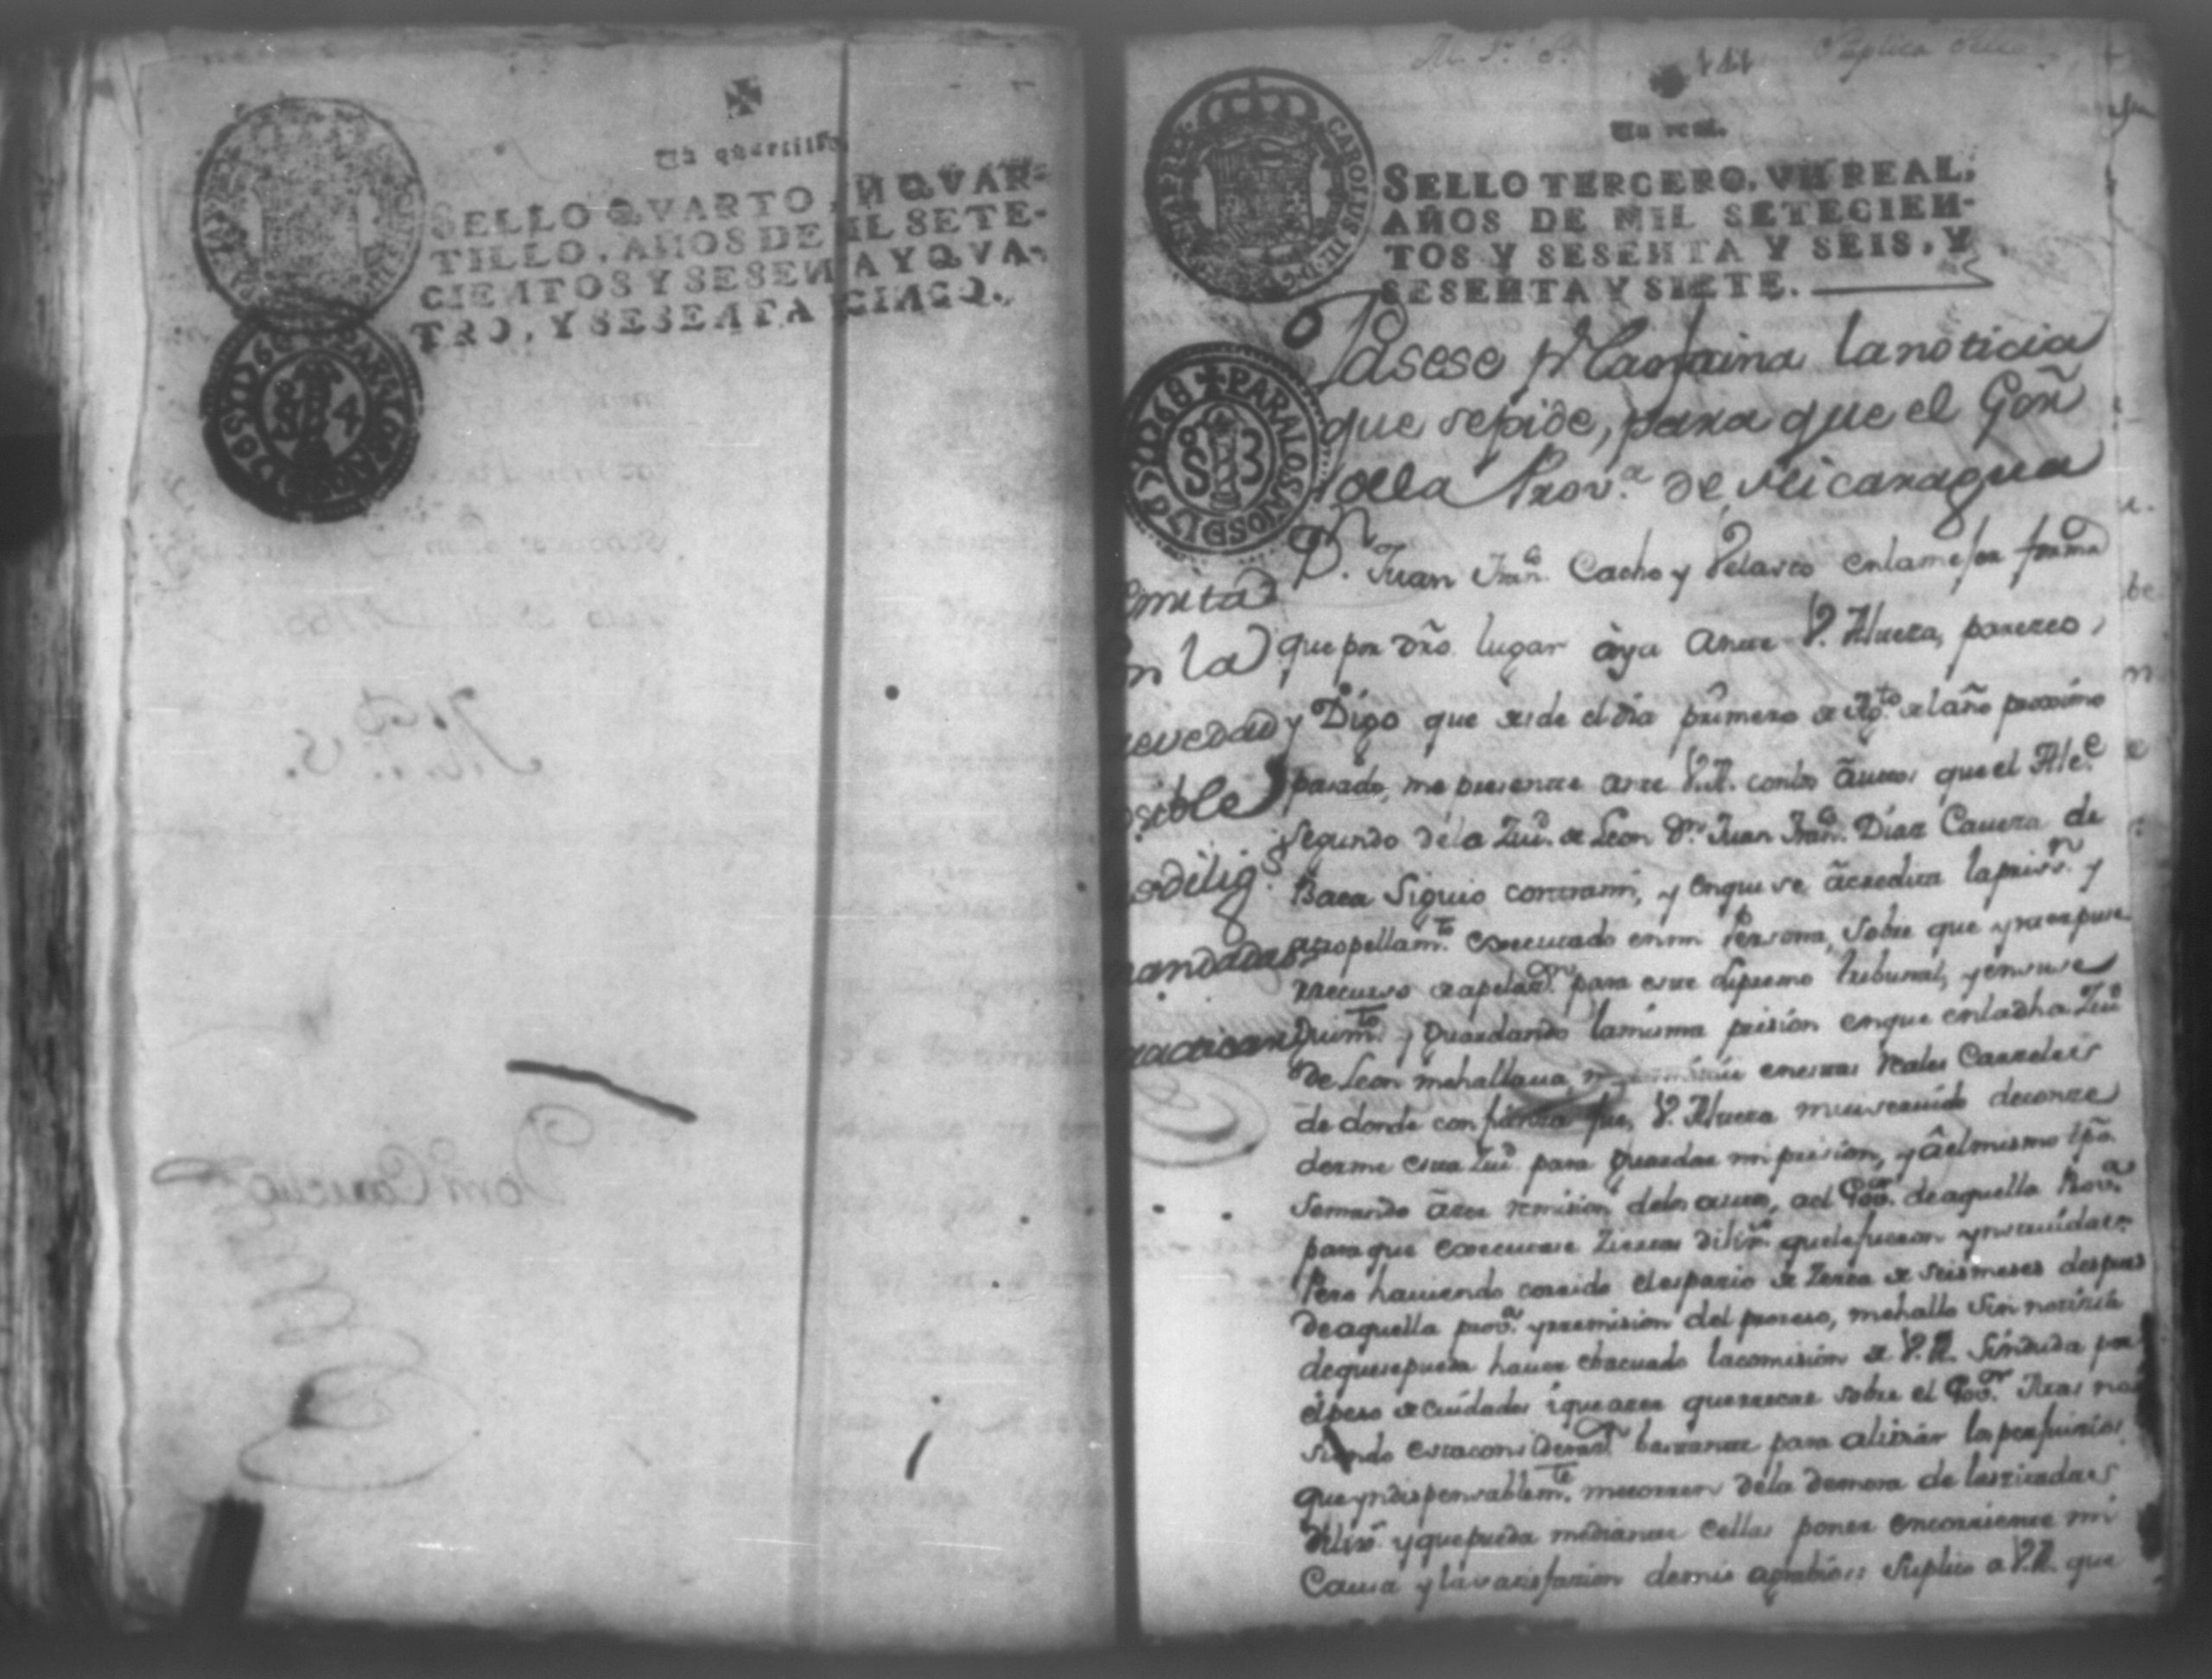 Un quartillo.
SELLO QVARTO, VN QVAR-
TILLO, AÑOS DE MIL SETE-
CIENTOS Y SESENTA Y QVA-
TRO, Y SESENTA Y CINCO.
PARA LOS AÑOS DE
S 4
Un real.
CAROLUS III. D. G.
SELLO TERCERO, VN REAL,
AÑOS DE MIL SETECIEN-
TOS Y SESENTA Y SEIS, Y
SESENTA Y SIETE.
PARA LOS AÑOS DE 1767 Y 1768
S 3
Pasese pr la noticia
que se pide, para que el Gor
de la Prov.a de Nicaragua
emita
en la
brevedad
posible
as dilig.s
mandadas
practicar
Dn. Juan Fran.co Cacho y Velasco en la mejor forma
que por dro. lugar aya ante V. Alteza, parezco,
y Digo que desde el dia primero de Ag.to del año proximo
pasado, me presente ante V.A. con los autos que el Alc.e
segundo de la Ziud. de Leon Dn. Juan Fran.co Diaz Caveza de
Baca siguio contra mi, y en que se acredita la prisn. y
atropellam.to executado en mi Persona, sobre que ynterpuse
recurso de apelazn. para este supremo tribunal, y en su se
quim.to y guardando la misma prision en que en la dha Ziud
de Leon me hallava, en estas Reales Carzeles
de donde con fianza fue V. Alteza mui servido de conze
derme esta Ziud. para guardar mi prision, y a el mismo tpo.
se mando azer remision de los autos, a el Gov.or de aquella Prov.a
para que executase ziertas dilix.s que le fueron ynstruidas.
Pero haviendo corrido el espazio de zerca de seis meses despues
de aquella prov.a y remision del prozeso, me hallo sin noticia
de que se pueda haver ebacuado la comision de V.A. sin duda por
el peso de cuidados que sobre el Gov.or Mas no
siendo esta considerazn. bastante para alibiar los perjuizios
que yndispensablem.te me corren de la demora de las zitadas
dilix.s y que pueda mediante ellas poner en corriente mi
Causa y la satisfazion de mis agrabios: Suplico a V.A. que